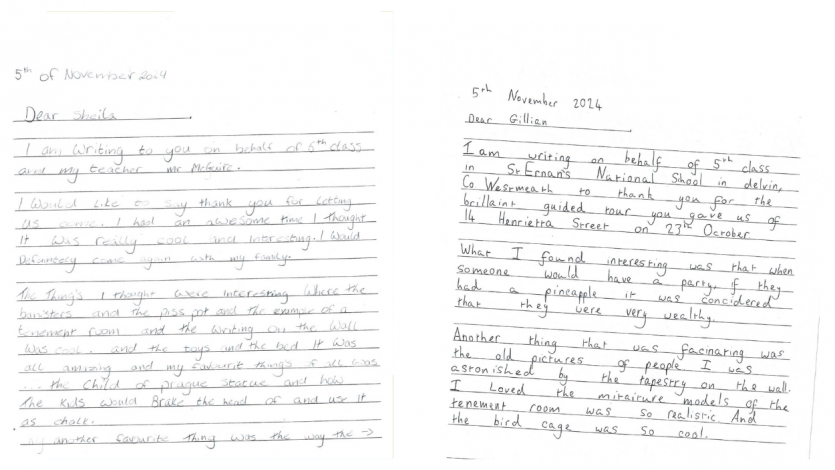 5th of November 2024
Dear Sheila
I am Writing to you on behalf of 5th class
and my teacher mr McGuire.
I Would Like to say thank you for Letting
us come. I had an awesome time I thought
It was really cool and Interesting. I Would
Definetely come again with my family.
The Thing's I thought Were Interesting Where the
banisters and the piss pot and the example of a
tenement room and the writing on the Wall
Was cool. and the toys and the bed It Was
all amazing and my favourit thing's of all was
... the Child of prague statue and how
The Kids Would Brake the head of and use It
as chalk.
another favourite Thing Was the way the →
5th November 2024
Dear Gillian
I am writing on behalf of 5th class
in St Ernan's National Shool in delvin,
Co. Westmeath to thank you for the
brillaint guided tour you gave us of
14 Henrietta Street on 23th October
What I found interesting was that when
someone would have a party, if they
had a pineapple it was concidered
that they were very wealthy.
Another thing that was facinating was
the old pictures of people I was
astonished by the tapestry on the wall.
I Loved the miraiture models of the
tenement room was so realistic And
the bird cage was so cool.